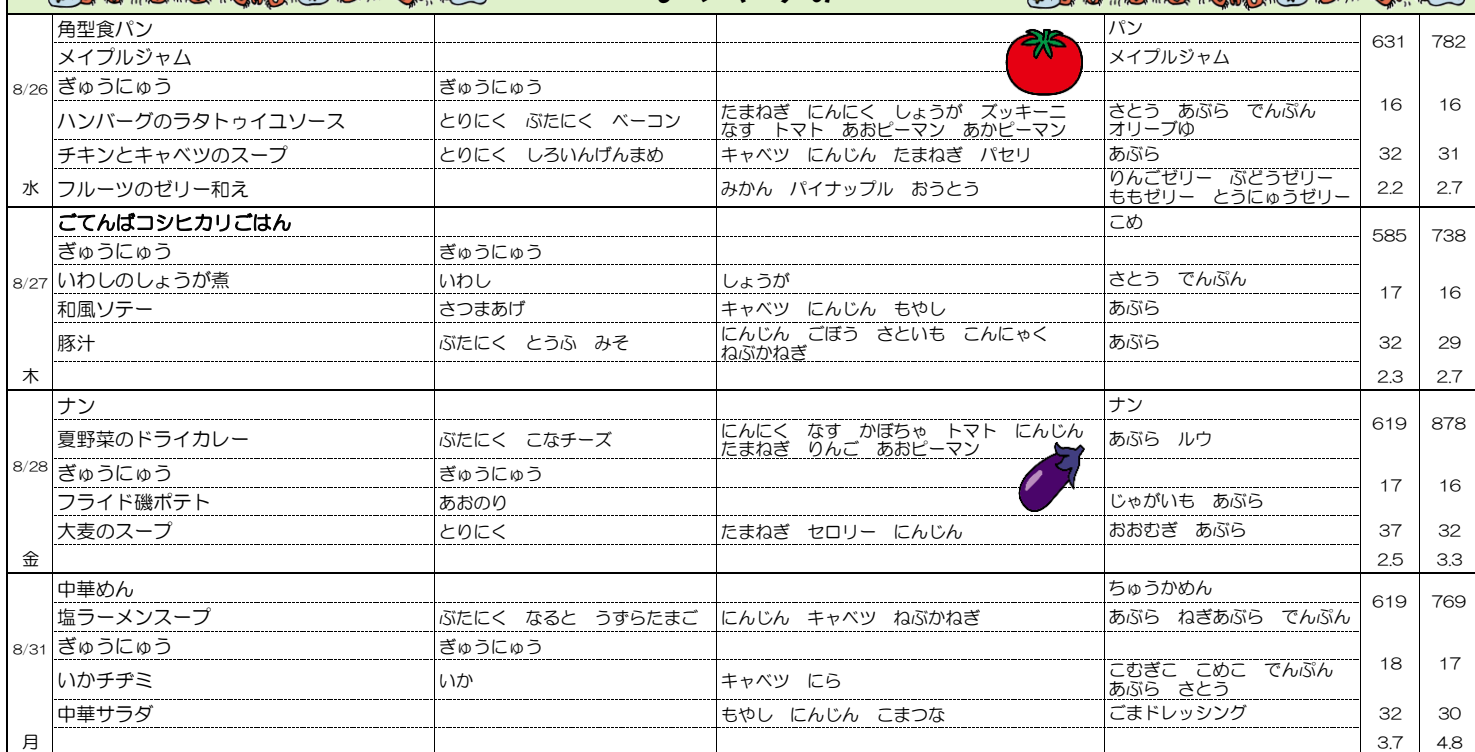 角型食パン パン 631 782
メイプルジャム メイプルジャム
8/26 ぎゅうにゅう ぎゅうにゅう
ハンバーグのラタトゥイユソース とりにく ぶたにく ベーコン たまねぎ にんにく しょうが ズッキーニ さとう あぶら でんぷん 16 16
なす トマト あおピーマン あかピーマン オリーブゆ
チキンとキャベツのスープ とりにく しろいんげんまめ キャベツ にんじん たまねぎ パセリ あぶら 32 31
水 フルーツのゼリー和え みかん パイナップル おうとう りんごゼリー ぶどうゼリー 2.2 2.7
ももゼリー とうにゅうゼリー
ごてんばコシヒカリごはん こめ 585 738
ぎゅうにゅう ぎゅうにゅう
8/27 いわしのしょうが煮 いわし しょうが さとう でんぷん 17 16
和風ソテー さつまあげ キャベツ にんじん もやし あぶら
豚汁 ぶたにく とうふ みそ にんじん ごぼう さといも こんにゃく あぶら 32 29
ねぶかねぎ
木 2.3 2.7
ナン ナン 619 878
夏野菜のドライカレー ぶたにく こなチーズ にんにく なす かぼちゃ トマト にんじん あぶら ルウ
たまねぎ りんご あおピーマン
8/28 ぎゅうにゅう ぎゅうにゅう 17 16
フライド磯ポテト あおのり じゃがいも あぶら
大麦のスープ とりにく たまねぎ セロリー にんじん おおむぎ あぶら 37 32
金 2.5 3.3
中華めん ちゅうかめん 619 769
塩ラーメンスープ ぶたにく なると うずらたまご にんじん キャベツ ねぶかねぎ あぶら ねぎあぶら でんぷん
8/31 ぎゅうにゅう ぎゅうにゅう
いかチヂミ いか キャベツ にら こむぎこ こめこ でんぷん 18 17
あぶら さとう
中華サラダ もやし にんじん こまつな ごまドレッシング 32 30
月 3.7 4.8